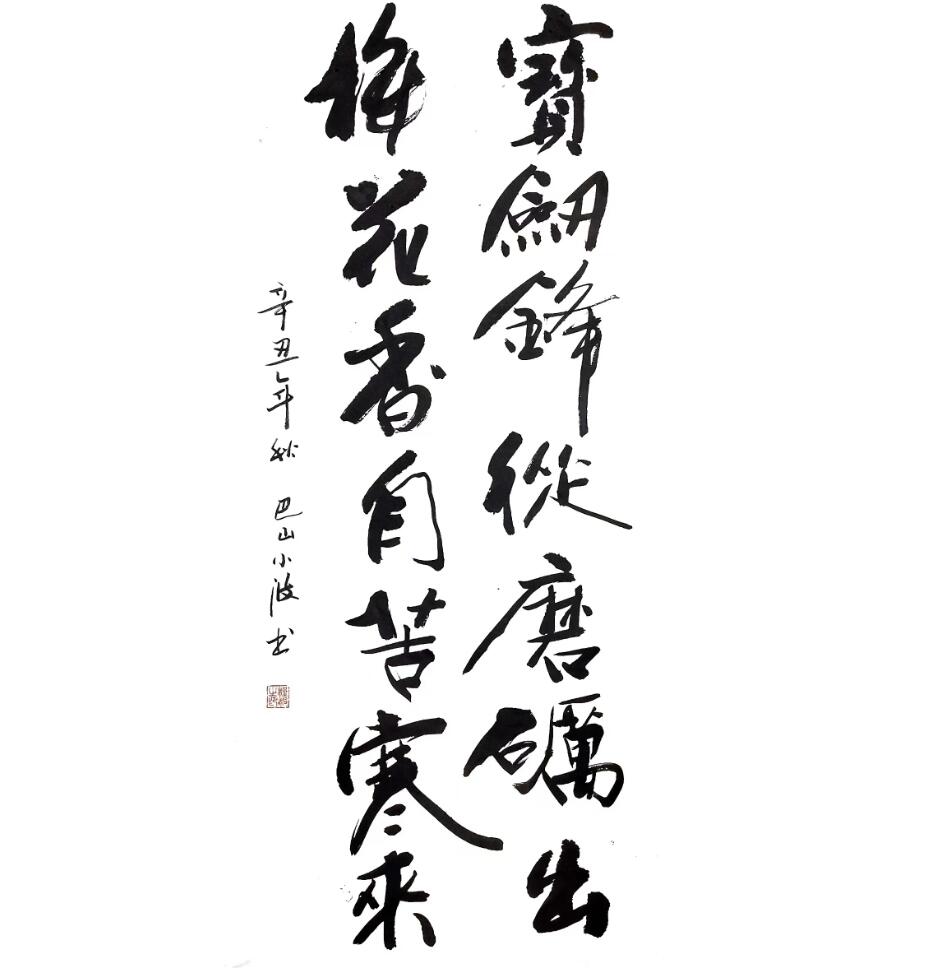 寶劎鋒從磨礪出
梅花香自苦寒來
辛丑年秋 巴山小波书